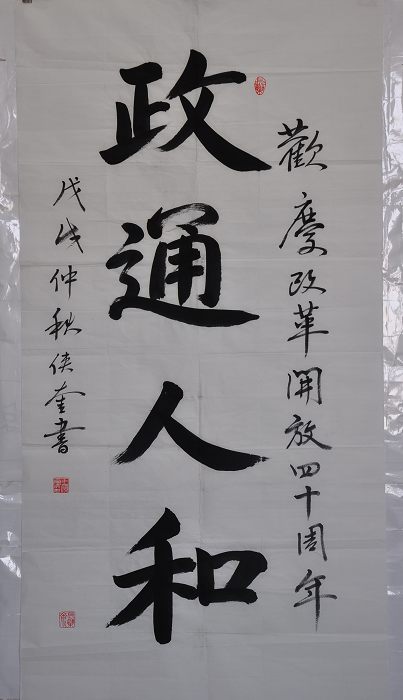 歡慶改革開放四十周年
政通人和
戊戌仲秋俠奎書